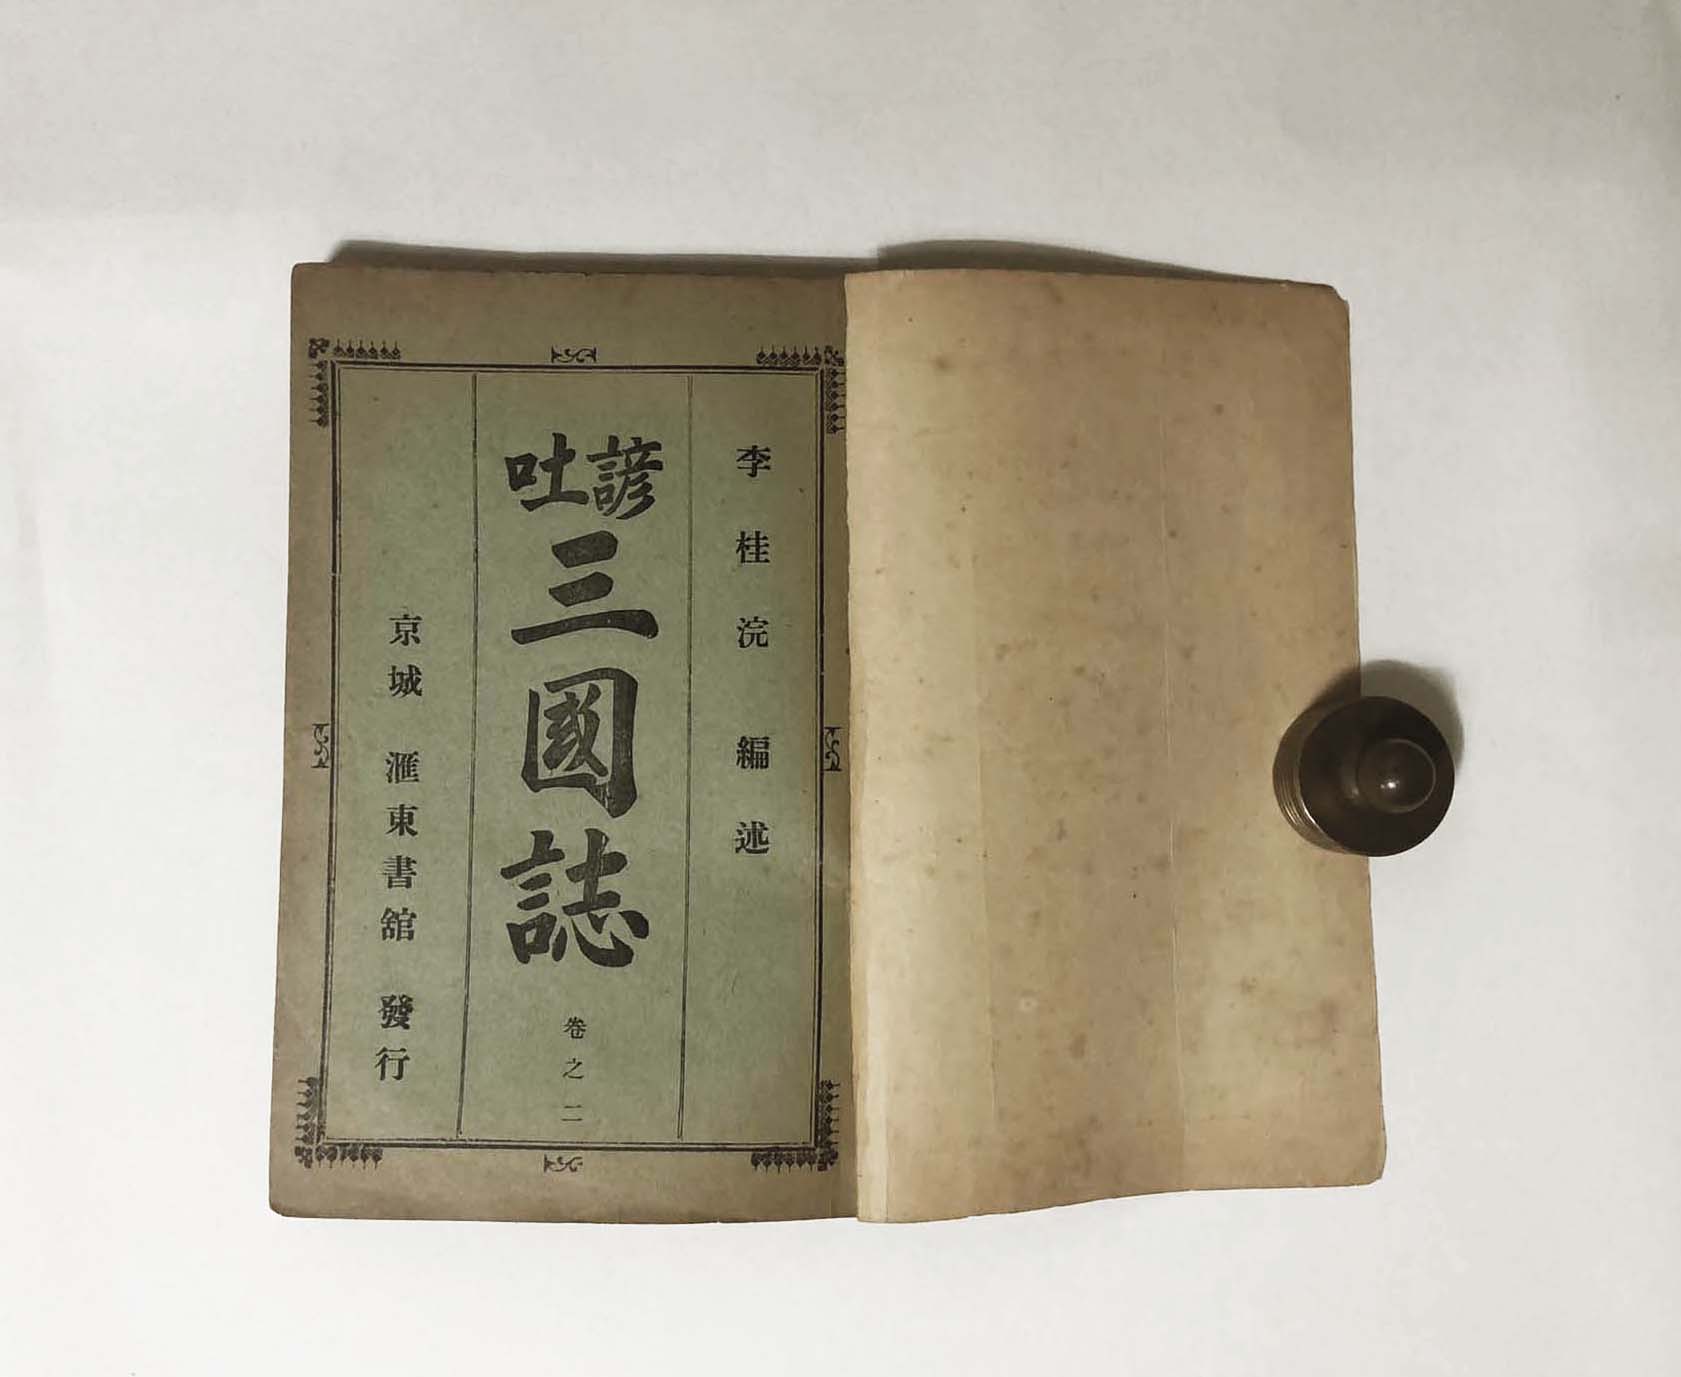 李桂浣 編述
諺吐
三國誌 卷之二
京城 滙東書舘 發行